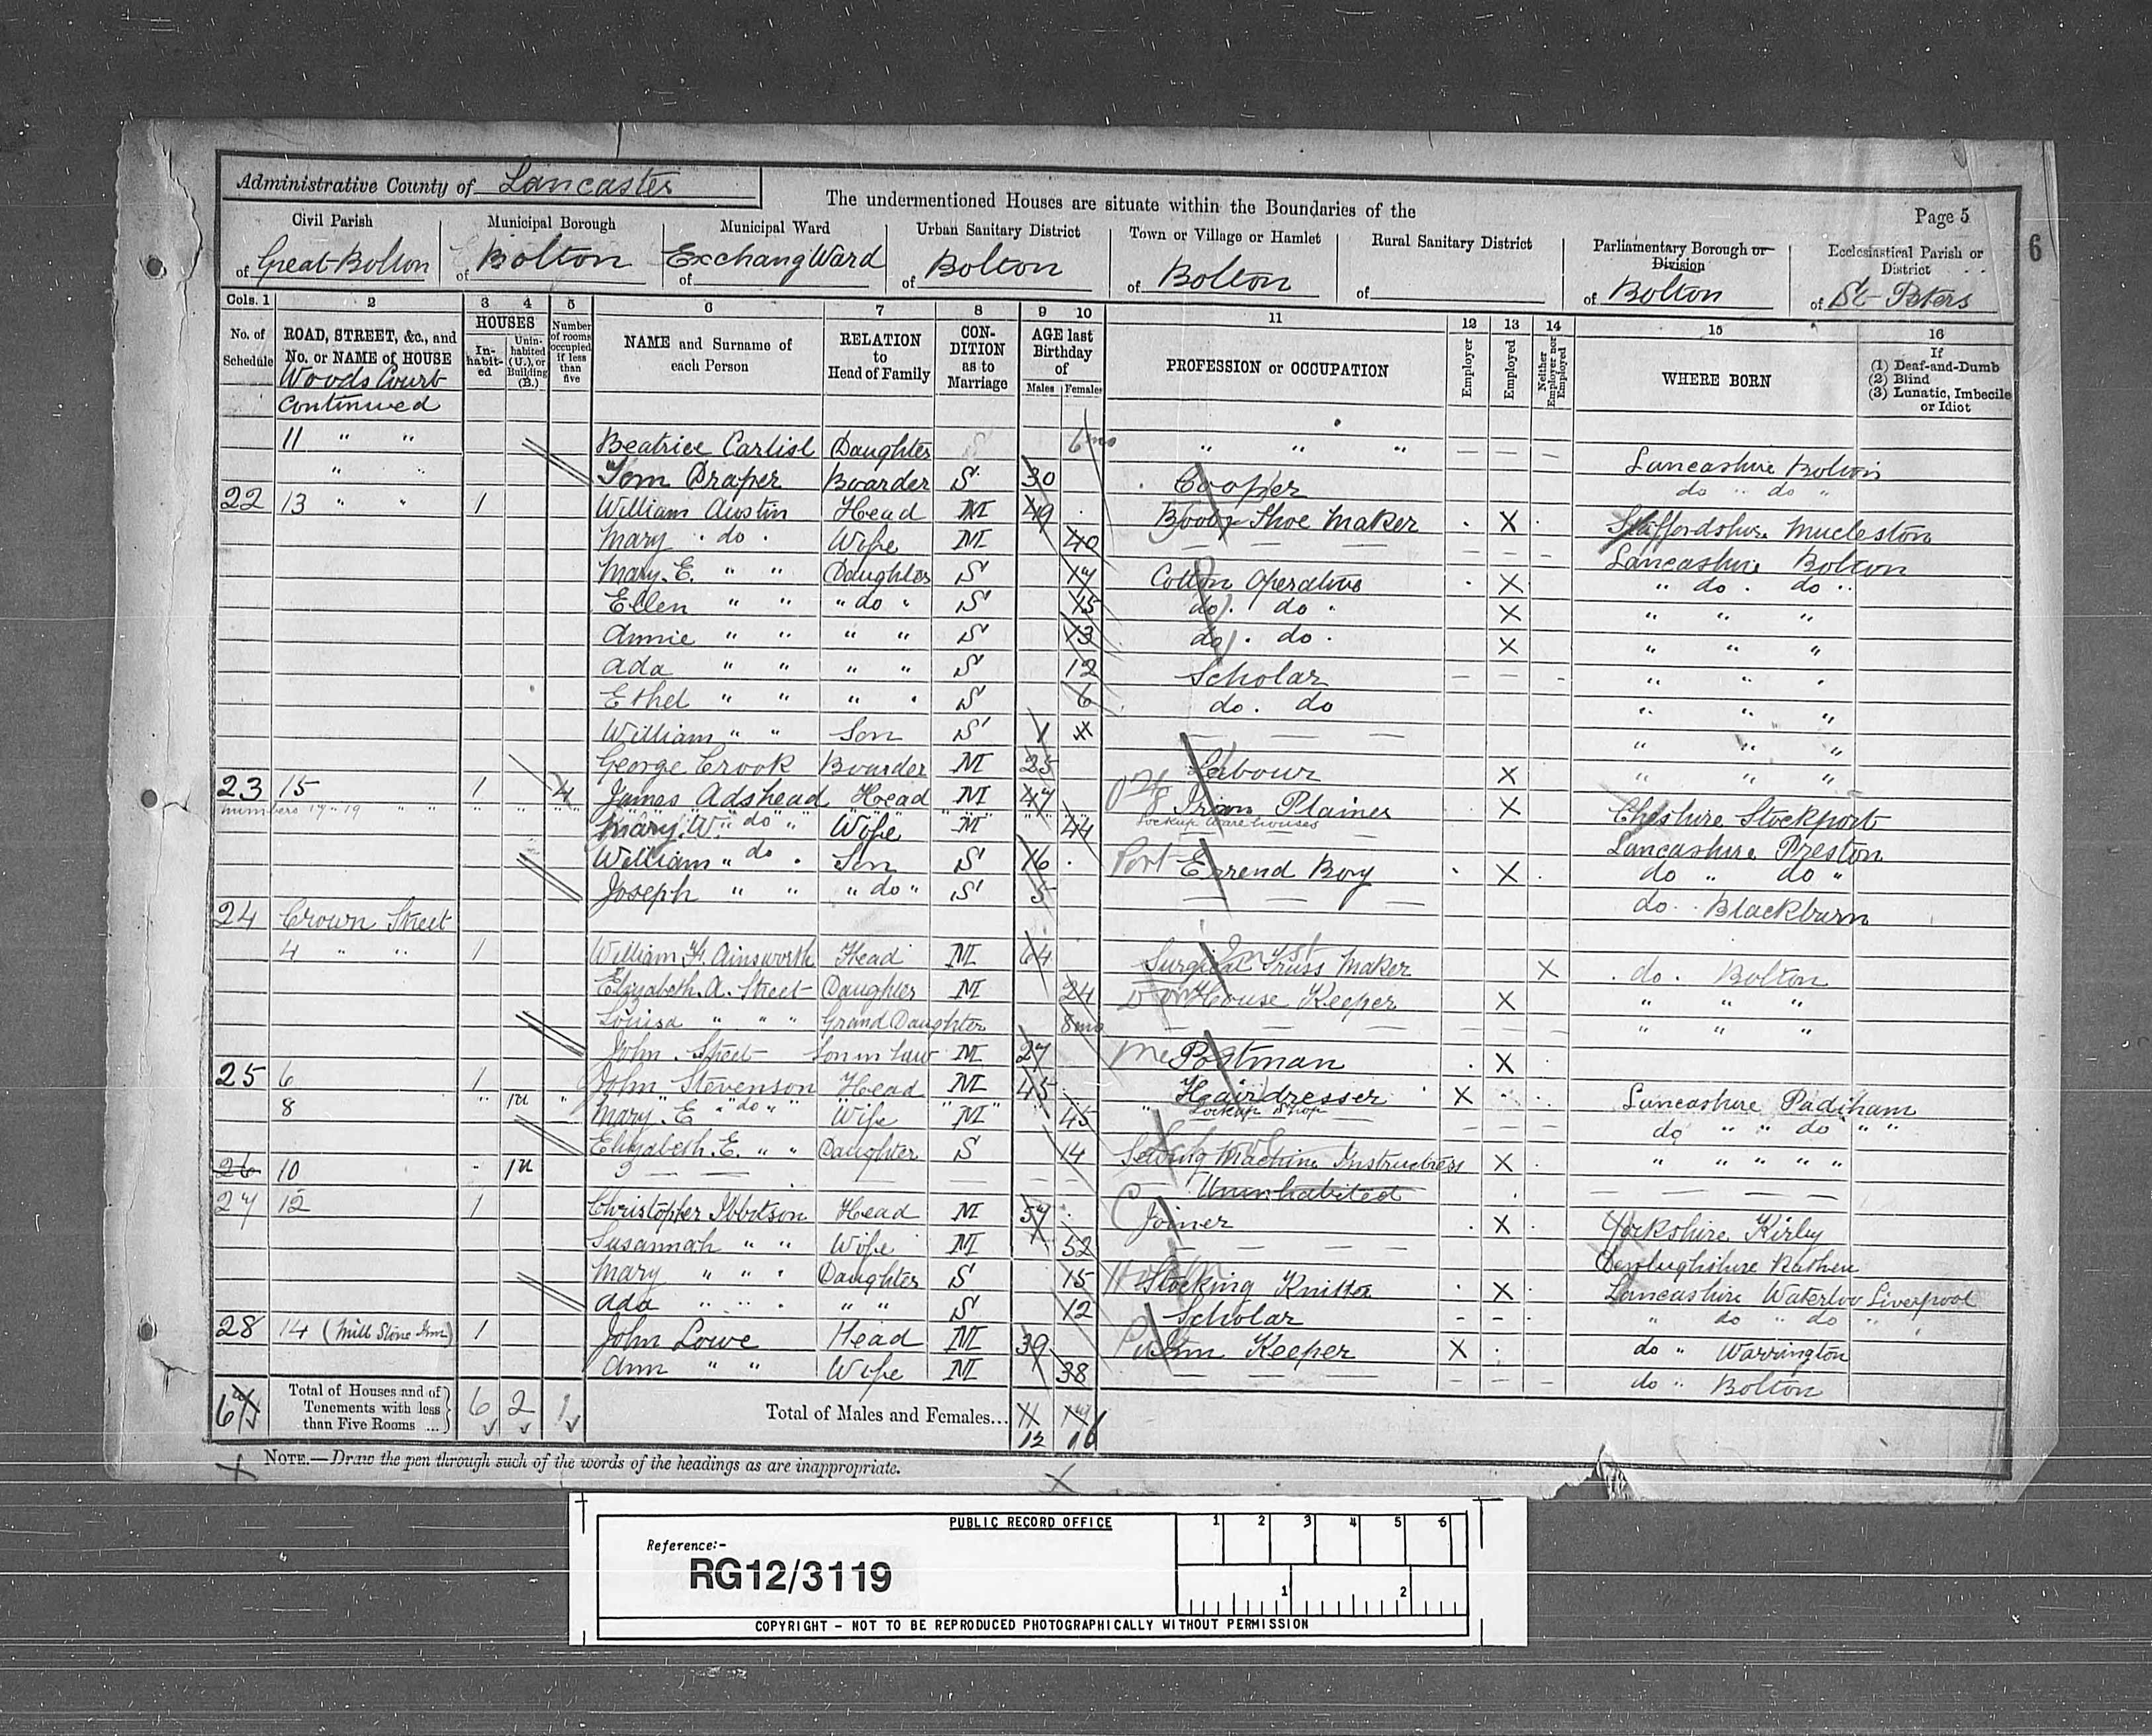 Administrative County of Lancaster
The undermentioned Houses are situate within the Boundaries of the
Page 5
6
Civil Parish of Great Bolton
Municipal Borough of Bolton
Municipal Ward of Exchang Ward
Urban Sanitary District of Bolton
Town or Village or Hamlet of Bolton
Rural Sanitary District of
Parliamentary Borough or Division of Bolton
Ecclesiastical Parish or District of St Peters
Cols. 1 2 3 4 5 6 7 8 9 10 11 12 13 14 15 16
No. of Schedule
ROAD, STREET, &c., and No. or NAME of HOUSE
HOUSES
Inhabited
Uninhabited (U.), or Building (B.)
Number of rooms occupied if less than five
NAME and Surname of each Person
RELATION to Head of Family
CONDITION as to Marriage
AGE last Birthday of
Males Females
PROFESSION or OCCUPATION
Employer
Employed
Neither Employer nor Employed
WHERE BORN
If (1) Deaf-and-Dumb (2) Blind (3) Lunatic, Imbecile or Idiot
Woods Court
Continued
11 " " Beatrice Carlisl Daughter 6mo " " " — — — Lancashire Bolton
" " Tom Draper Boarder S 30 Cooper do " do "
22 13 " " 1 William Austin Head M 49 Shoe Maker X Staffordshire Mucleston
Mary do Wife M 40 — — — Lancashire Bolton
Mary. E. " " Daughter S 17 Cotton Operative X " do do "
Ellen " " " do " S 15 do. do X " " "
Annie " " " " S 13 do. do X " " "
Ada " " " " S 12 Scholar — — - " " "
Ethel " " " " S 6 do. do " " "
William " " Son S 1 — — — " " "
George Crook Boarder M 25 Labour X " " "
23 15 1 4 James Adshead Head M 47 Iron Plainer X Cheshire Stockport
numbers 17 " 19 " " Lockup Warehouses
Mary. W. " do " Wife M 44 Lancashire Preston
William " do Son S 16 Port Errend Boy X do " do "
Joseph " " " do " S 5 — — — do Blackburn
24 Crown Street
4 " " 1 William H. Ainsworth Head M 64 Surgical Truss Maker X do. Bolton
Elizabeth. A. Street Daughter M 24 House Keeper X " " "
Louisa " " " Grand Daughter 8mo — — — " " "
John Street Son in Law M 27 Postman X
25 6 1 John Stevenson Head M 45 Hairdresser X Lancashire Padiham
8 1U Lockup Shop
Mary. E " do " Wife M 45 — — — do " " do " "
Elizabeth. E. " " Daughter S 14 Sewing Machine Instructress X " " " " "
26 10 - 1U — — — Uninhabited — — — —
27 12 1 Christopher Ibbotson Head M 57 Joiner X Yorkshire Kirby
Susannah " " Wife M 52 — — — Denbughshire Ruthen
Mary " " Daughter S 15 Stocking Knitter X Lancashire Waterloo Liverpool
Ada " " " " S 12 Scholar - - " do " do "
28 14 (Mill Stone Inn) 1 John Lowe Head M 39 Inn Keeper X do " Warrington
Ann " " Wife M 38 — — — do " Bolton
Total of Houses and of Tenements with less than Five Rooms ... 6 2 1
Total of Males and Females... 11 17
12 16
NOTE.—Draw the pen through such of the words of the headings as are inappropriate.
PUBLIC RECORD OFFICE
1 2 3 4 5 6
Reference:-
RG12/3119
1 2
COPYRIGHT - NOT TO BE REPRODUCED PHOTOGRAPHICALLY WITHOUT PERMISSION